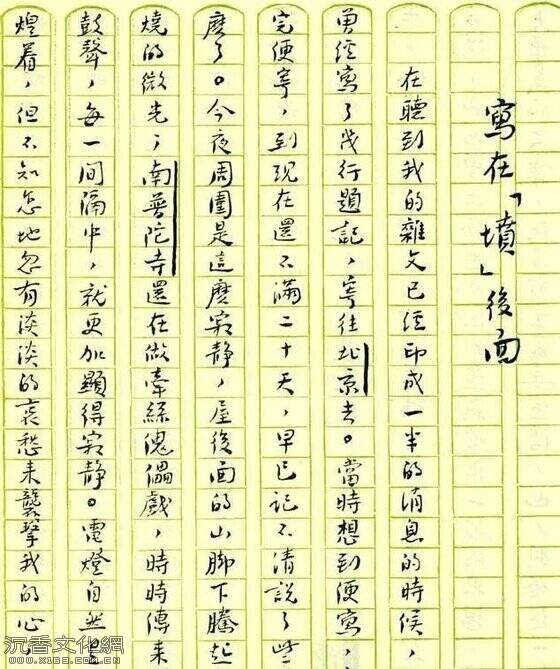 寫在「墳」後面
在聽到我的雜文已經印成一半的消息的時候，
曾經寫了幾行題記，寄往北京去。當時想到便寫，
完便寄，到現在還不滿二十天，早已記不清說了些
麽了。今夜周圍是這麽寂靜，屋後面的山脚下騰起
燒的微光；南普陀寺還在做牽絲傀儡戲，時時傳來
鼓聲，每一間隔中，就更加顯得寂靜。電燈自然是
煌着，但不知怎地忽有淡淡的哀愁來襲擊我的心，
沉香文化網